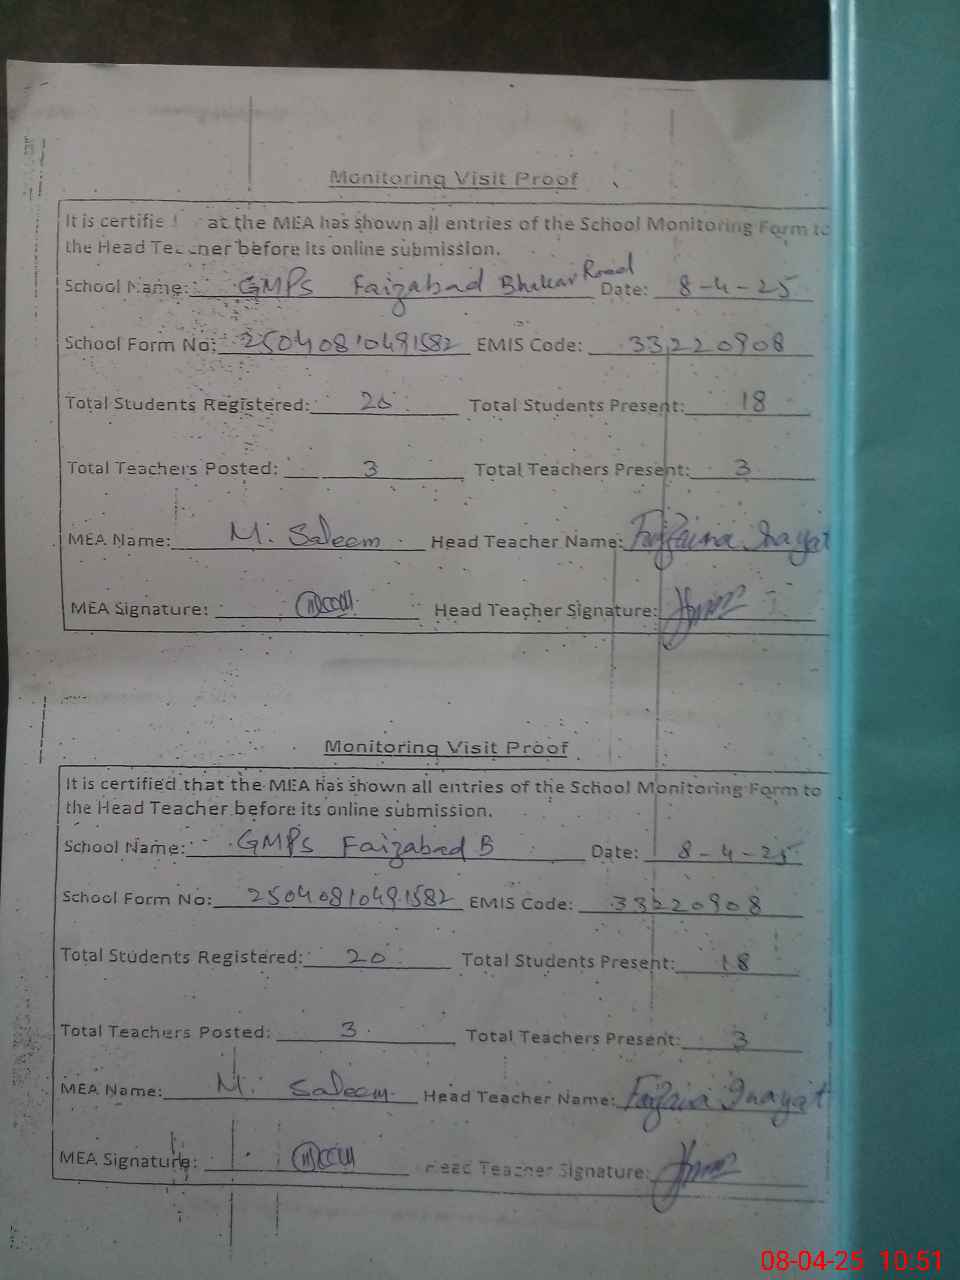 Monitoring Visit Proof
It is certifie at the MEA has shown all entries of the School Monitoring Form to
the Head Teacher before its online submission.
School Name: GMPS Faizabad Bhakar Road Date: 8-4-25
School Form No: 25040810491582 EMIS Code: 33220908
Total Students Registered: 20 Total Students Present: 18
Total Teachers Posted: 3 Total Teachers Present: 3
MEA Name: M. Saleem Head Teacher Name: Inayat
MEA Signature: Head Teacher Signature:
Monitoring Visit Proof
It is certified that the MEA has shown all entries of the School Monitoring Form to
the Head Teacher before its online submission.
School Name: GMPS Faizabad B Date: 8-4-25
School Form No: 25040810491582 EMIS Code: 33220908
Total Students Registered: 20 Total Students Present: 18
Total Teachers Posted: 3 Total Teachers Present: 3
MEA Name: M. Saleem Head Teacher Name: Inayat
MEA Signature: Head Teacher Signature:
08-04-25 10:51